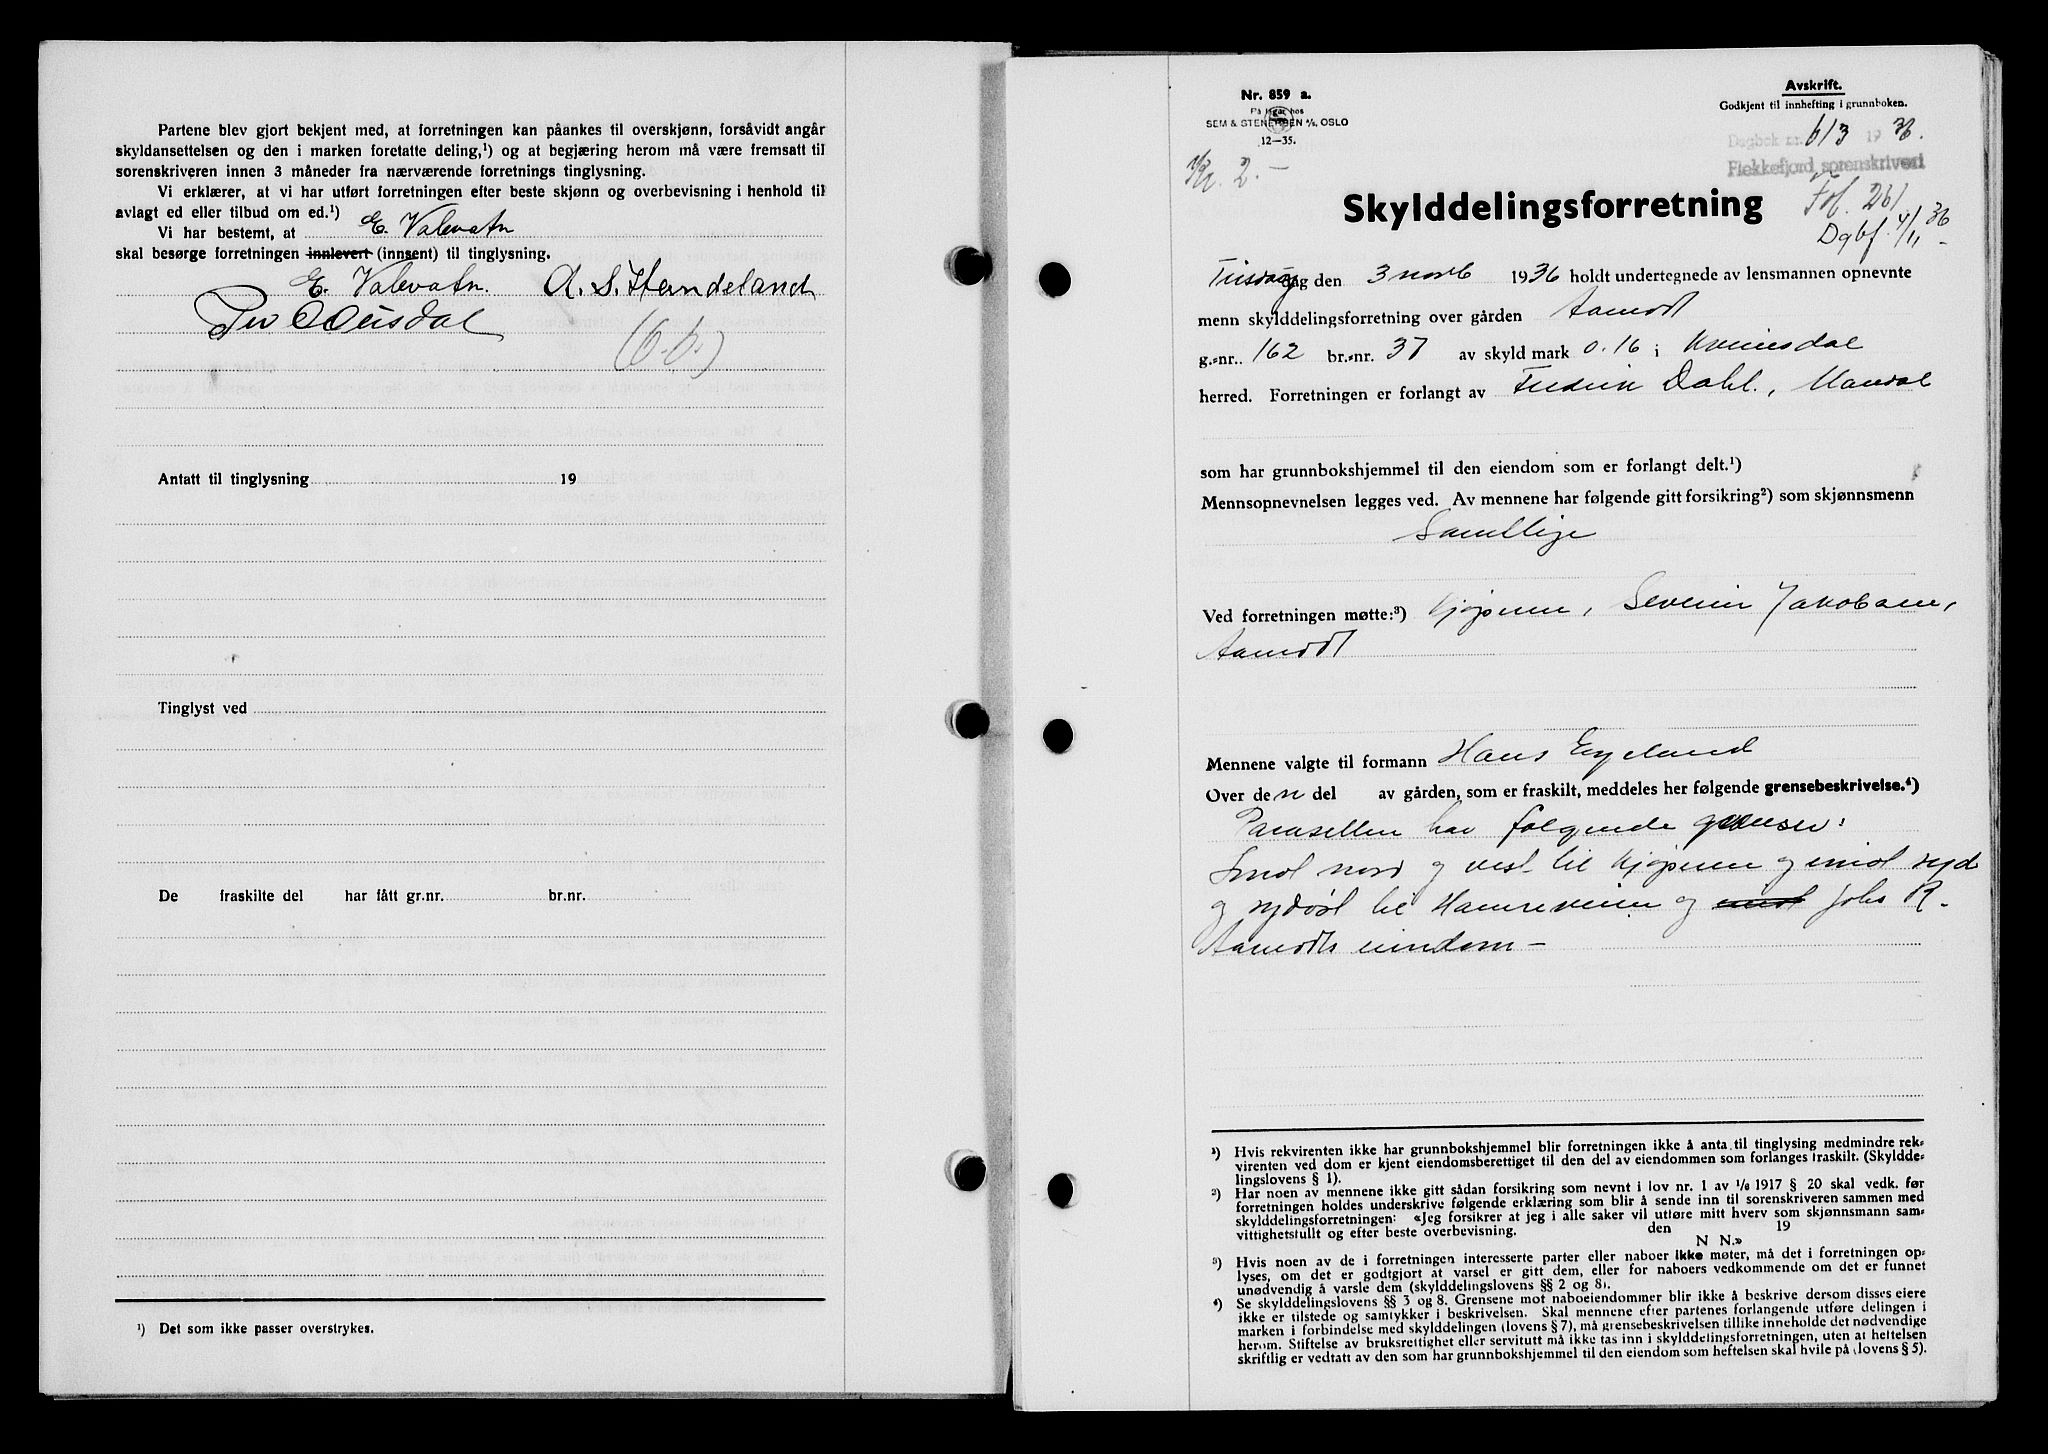 Partene blev gjort bekjent med, at forretningen kan påankes til overskjønn, forsåvidt angår
skyldansettelsen og den i marken foretatte deling,¹) og at begjæring herom må være fremsatt til
sorenskriveren innen 3 måneder fra nærværende forretnings tinglysning.
Vi erklærer, at vi har utført forretningen efter beste skjønn og overbevisning i henhold til
avlagt ed eller tilbud om ed.¹)
Vi har bestemt, at E. Valevatn
skal besørge forretningen innlevert (innsent) til tinglysning.
E. Valevatn. A. S. Hamdeland
Antatt til tinglysning 19
Tinglyst ved
De fraskilte del har fått gr.nr. br.nr.
¹) Det som ikke passer overstrykes.
Nr. 859 a.
På lager hos
SEM & STENERSEN A/S, OSLO
12—35.
Kr. 2.-
Avskrift.
Godkjent til innhefting i grunnboken.
Dagbok nr. 613 1936.
Flekkefjord sorenskriveri
Fol. 261
Dgbf. 4/11 36
Skylddelingsforretning
Tirsdag den 3 novb 1936 holdt undertegnede av lensmannen opnevnte
menn skylddelingsforretning over gården Aamodt
g.-nr. 162 br.-nr. 37 av skyld mark 0.16 i Kvinesdal
herred. Forretningen er forlangt av Fredrik Dahl, Mandal
som har grunnbokshjemmel til den eiendom som er forlangt delt.¹)
Mennsopnevnelsen legges ved. Av mennene har følgende gitt forsikring²) som skjønnsmenn
Samtlige
Ved forretningen møtte:³) Kjøperen, Severin Jakobsen,
Aamodt
Mennene valgte til formann Hans Egeland
Over den del av gården, som er fraskilt, meddeles her følgende grensebeskrivelse.⁴)
Parsellen har følgende grenser:
Imot nord og vest til kjøperen og imot syd
og sydøst til Hamreveien og imot Johs R.
Aamodts eiendom —
¹) Hvis rekvirenten ikke har grunnbokshjemmel blir forretningen ikke å anta til tinglysing medmindre rek-
virenten ved dom er kjent eiendomsberettiget til den del av eiendommen som forlanges fraskilt. (Skyldde-
lingslovens § 1).
²) Har noen av mennene ikke gitt sådan forsikring som nevnt i lov nr. 1 av 1/6 1917 § 20 skal vedk. før
forretningen holdes underskrive følgende erklæring som blir å sende inn til sorenskriveren sammen med
skylddelingsforretningen: «Jeg forsikrer at jeg i alle saker vil utføre mitt hverv som skjønnsmann sam-
vittighetsfullt og efter beste overbevisning. den 19
N N.»
³) Hvis noen av de i forretningen interesserte parter eller naboer ikke møter, må det i forretningen op-
lyses, om det er godtgjort at varsel er gitt dem, eller for naboers vedkommende om det er funnet
unødvendig å varsle dem (skylddelingslovens §§ 2 og 8).
⁴) Se skylddelingslovens §§ 3 og 8. Grensene mot naboeiendommer blir ikke å beskrive dersom disses eiere
ikke er tilstede og samtykker i beskrivelsen. Skal mennene efter partenes forlangende utføre delingen i
marken i forbindelse med skylddelingen (lovens § 7), må grensebeskrivelsen tillike inneholde det nødvendige
herom. Stiftelse av bruksrettighet eller servitutt må ikke tas inn i skylddelingsforretningen, uten at heftelsen
skriftlig er vedtatt av den som har grunnbokshjemmel til den eiendom som heftelsen skal hvile på (lovens § 5).